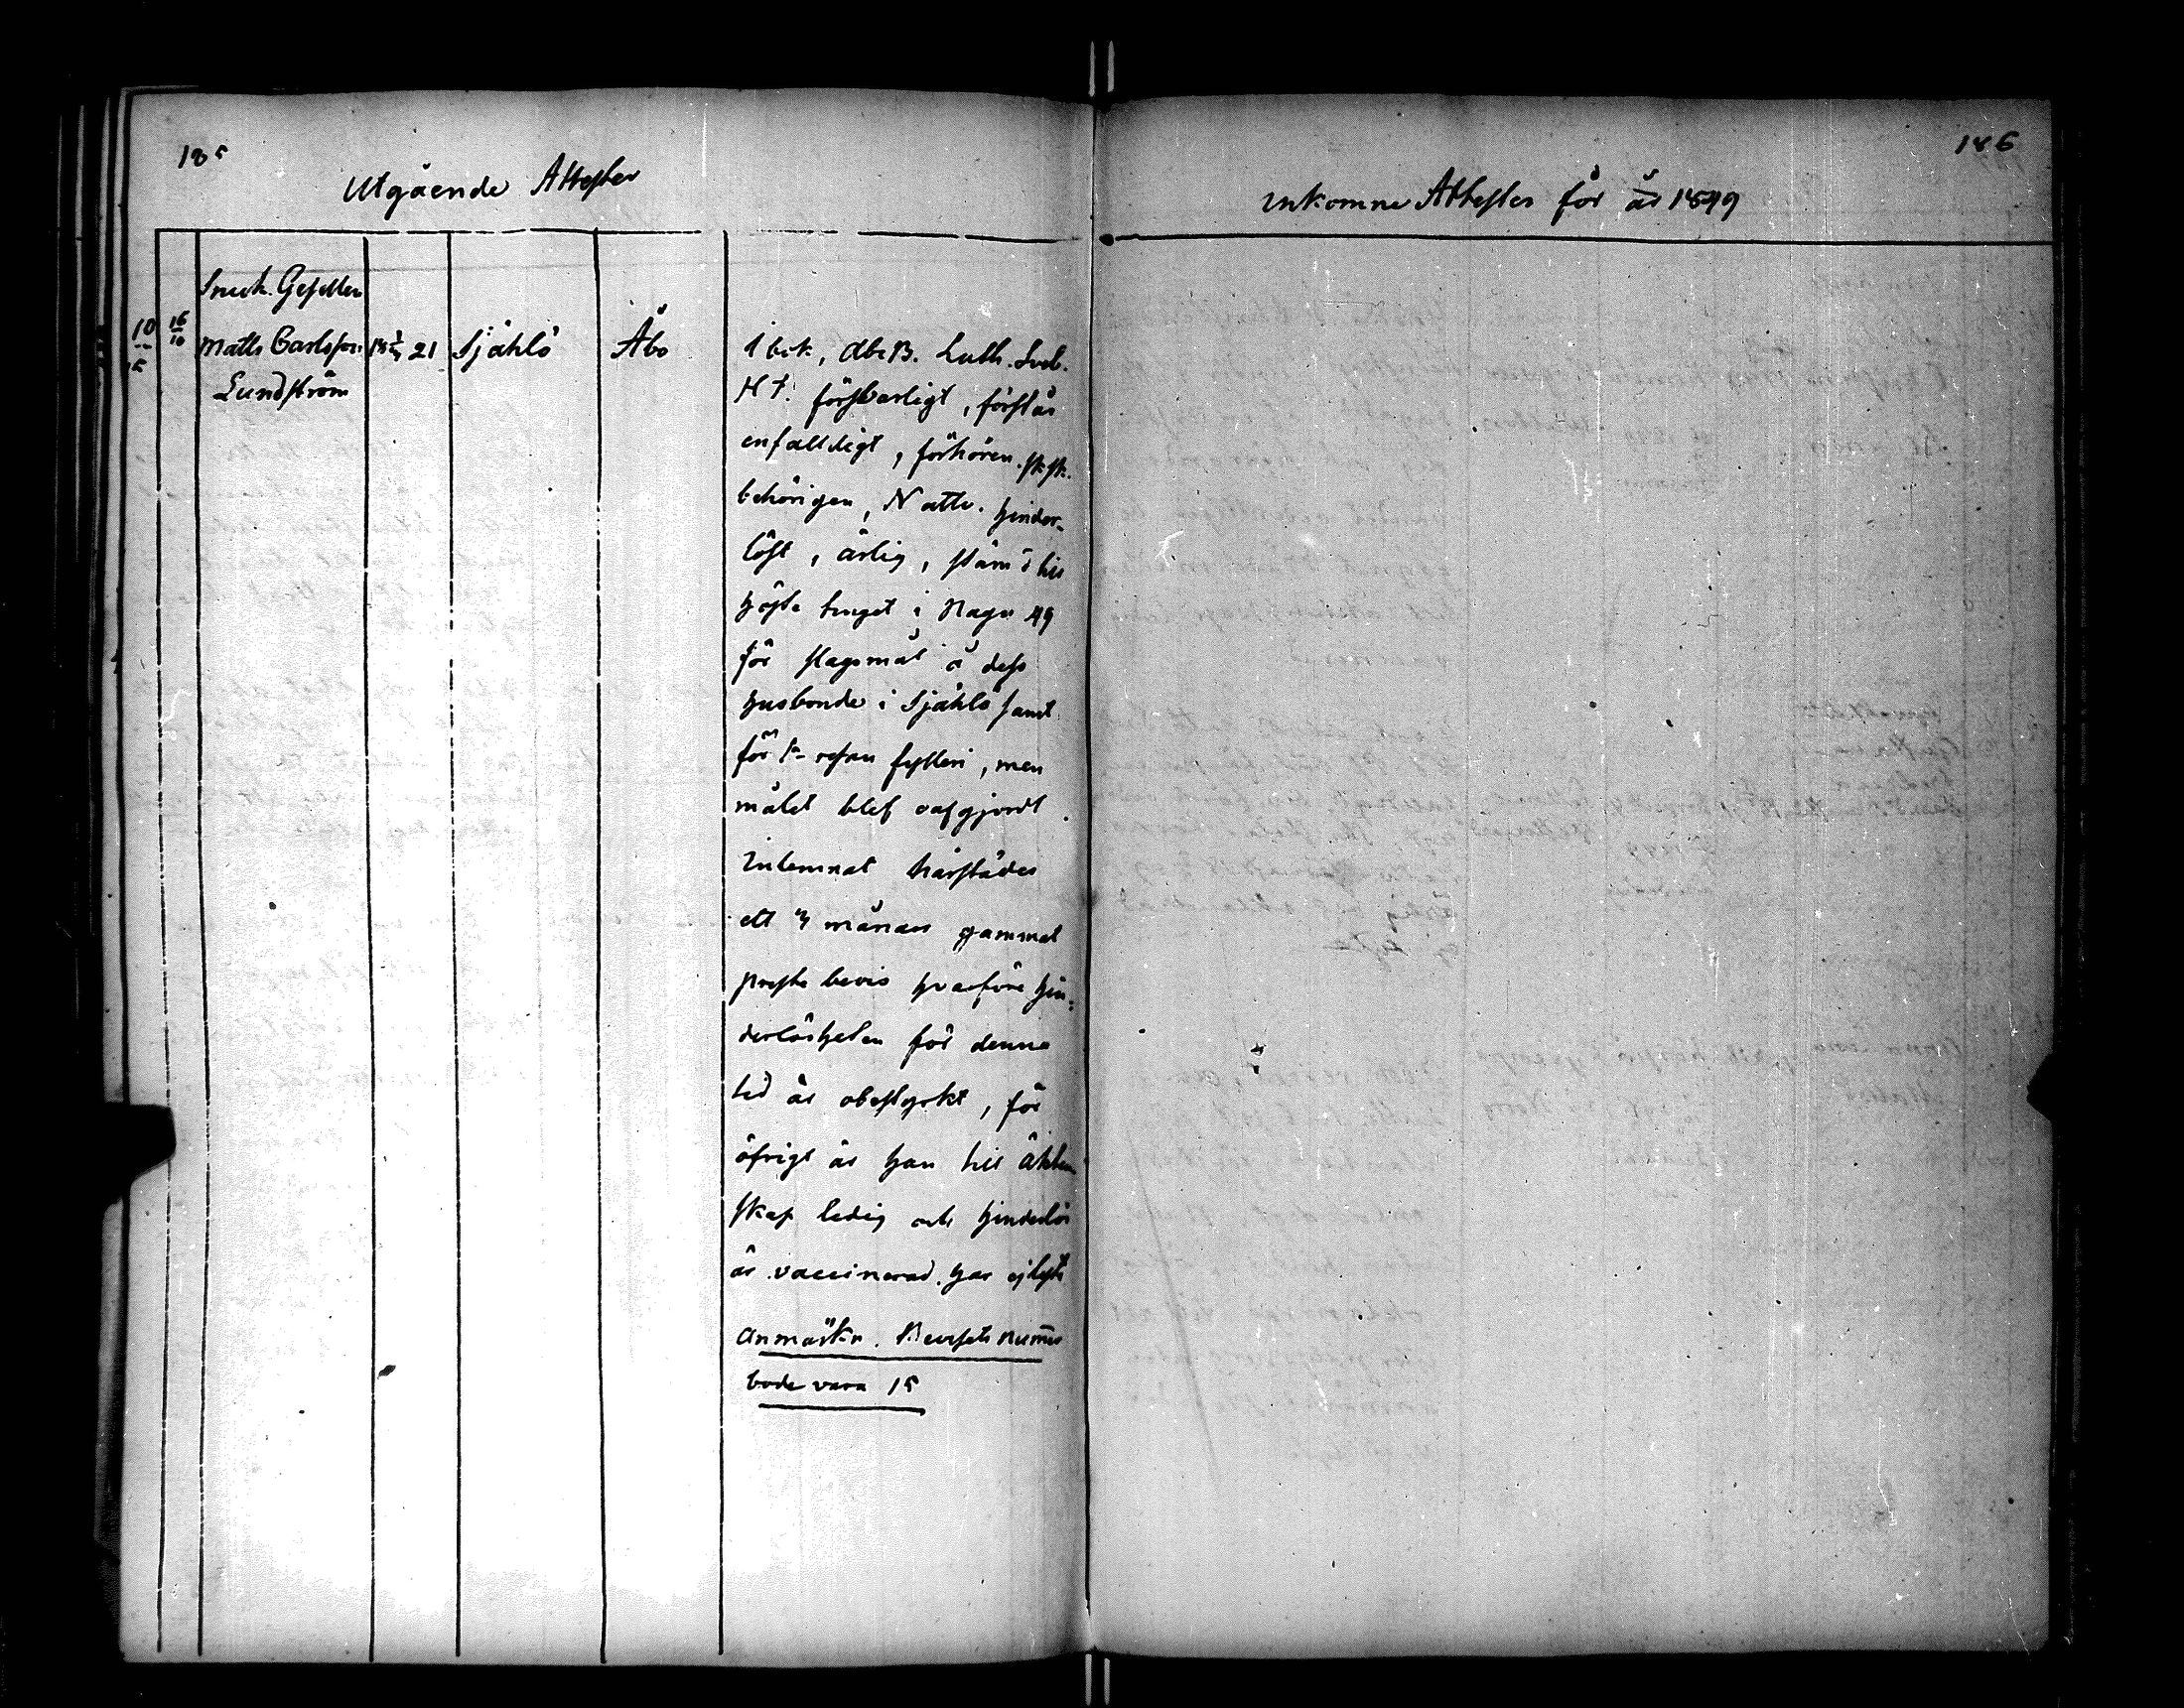 185
Utgående Attester
Snick. Gesellen
10 16/10 Matts Carlsson 21 Sjählö Åbo
5
Lundström
i bok, Abc B. Luth. Sveb.
H t. försvarligt, förstår
enfalldigt, förhören. sk sk.
behörigen, Nattv. hinder-
löst, ärlig, stämd till
hösta tinget i Nagu 49
för slagsmål å dess
husbonde i Sjählö samt
för 1- resan fylleri, men
målet blef oafgjordt
Inlemnat härstädes
ett 4 månars gammat
preste bevis hvarföre hin=
derlösheten för denna
tid är obestyrkt, för
öfrigt är han till äkten
skap ledig och hinderlös
är vaccinerad. har ej lyst
Anmärkn. Bevisets nummer
borde vara 15
186
Inkomne Attester för år 1849